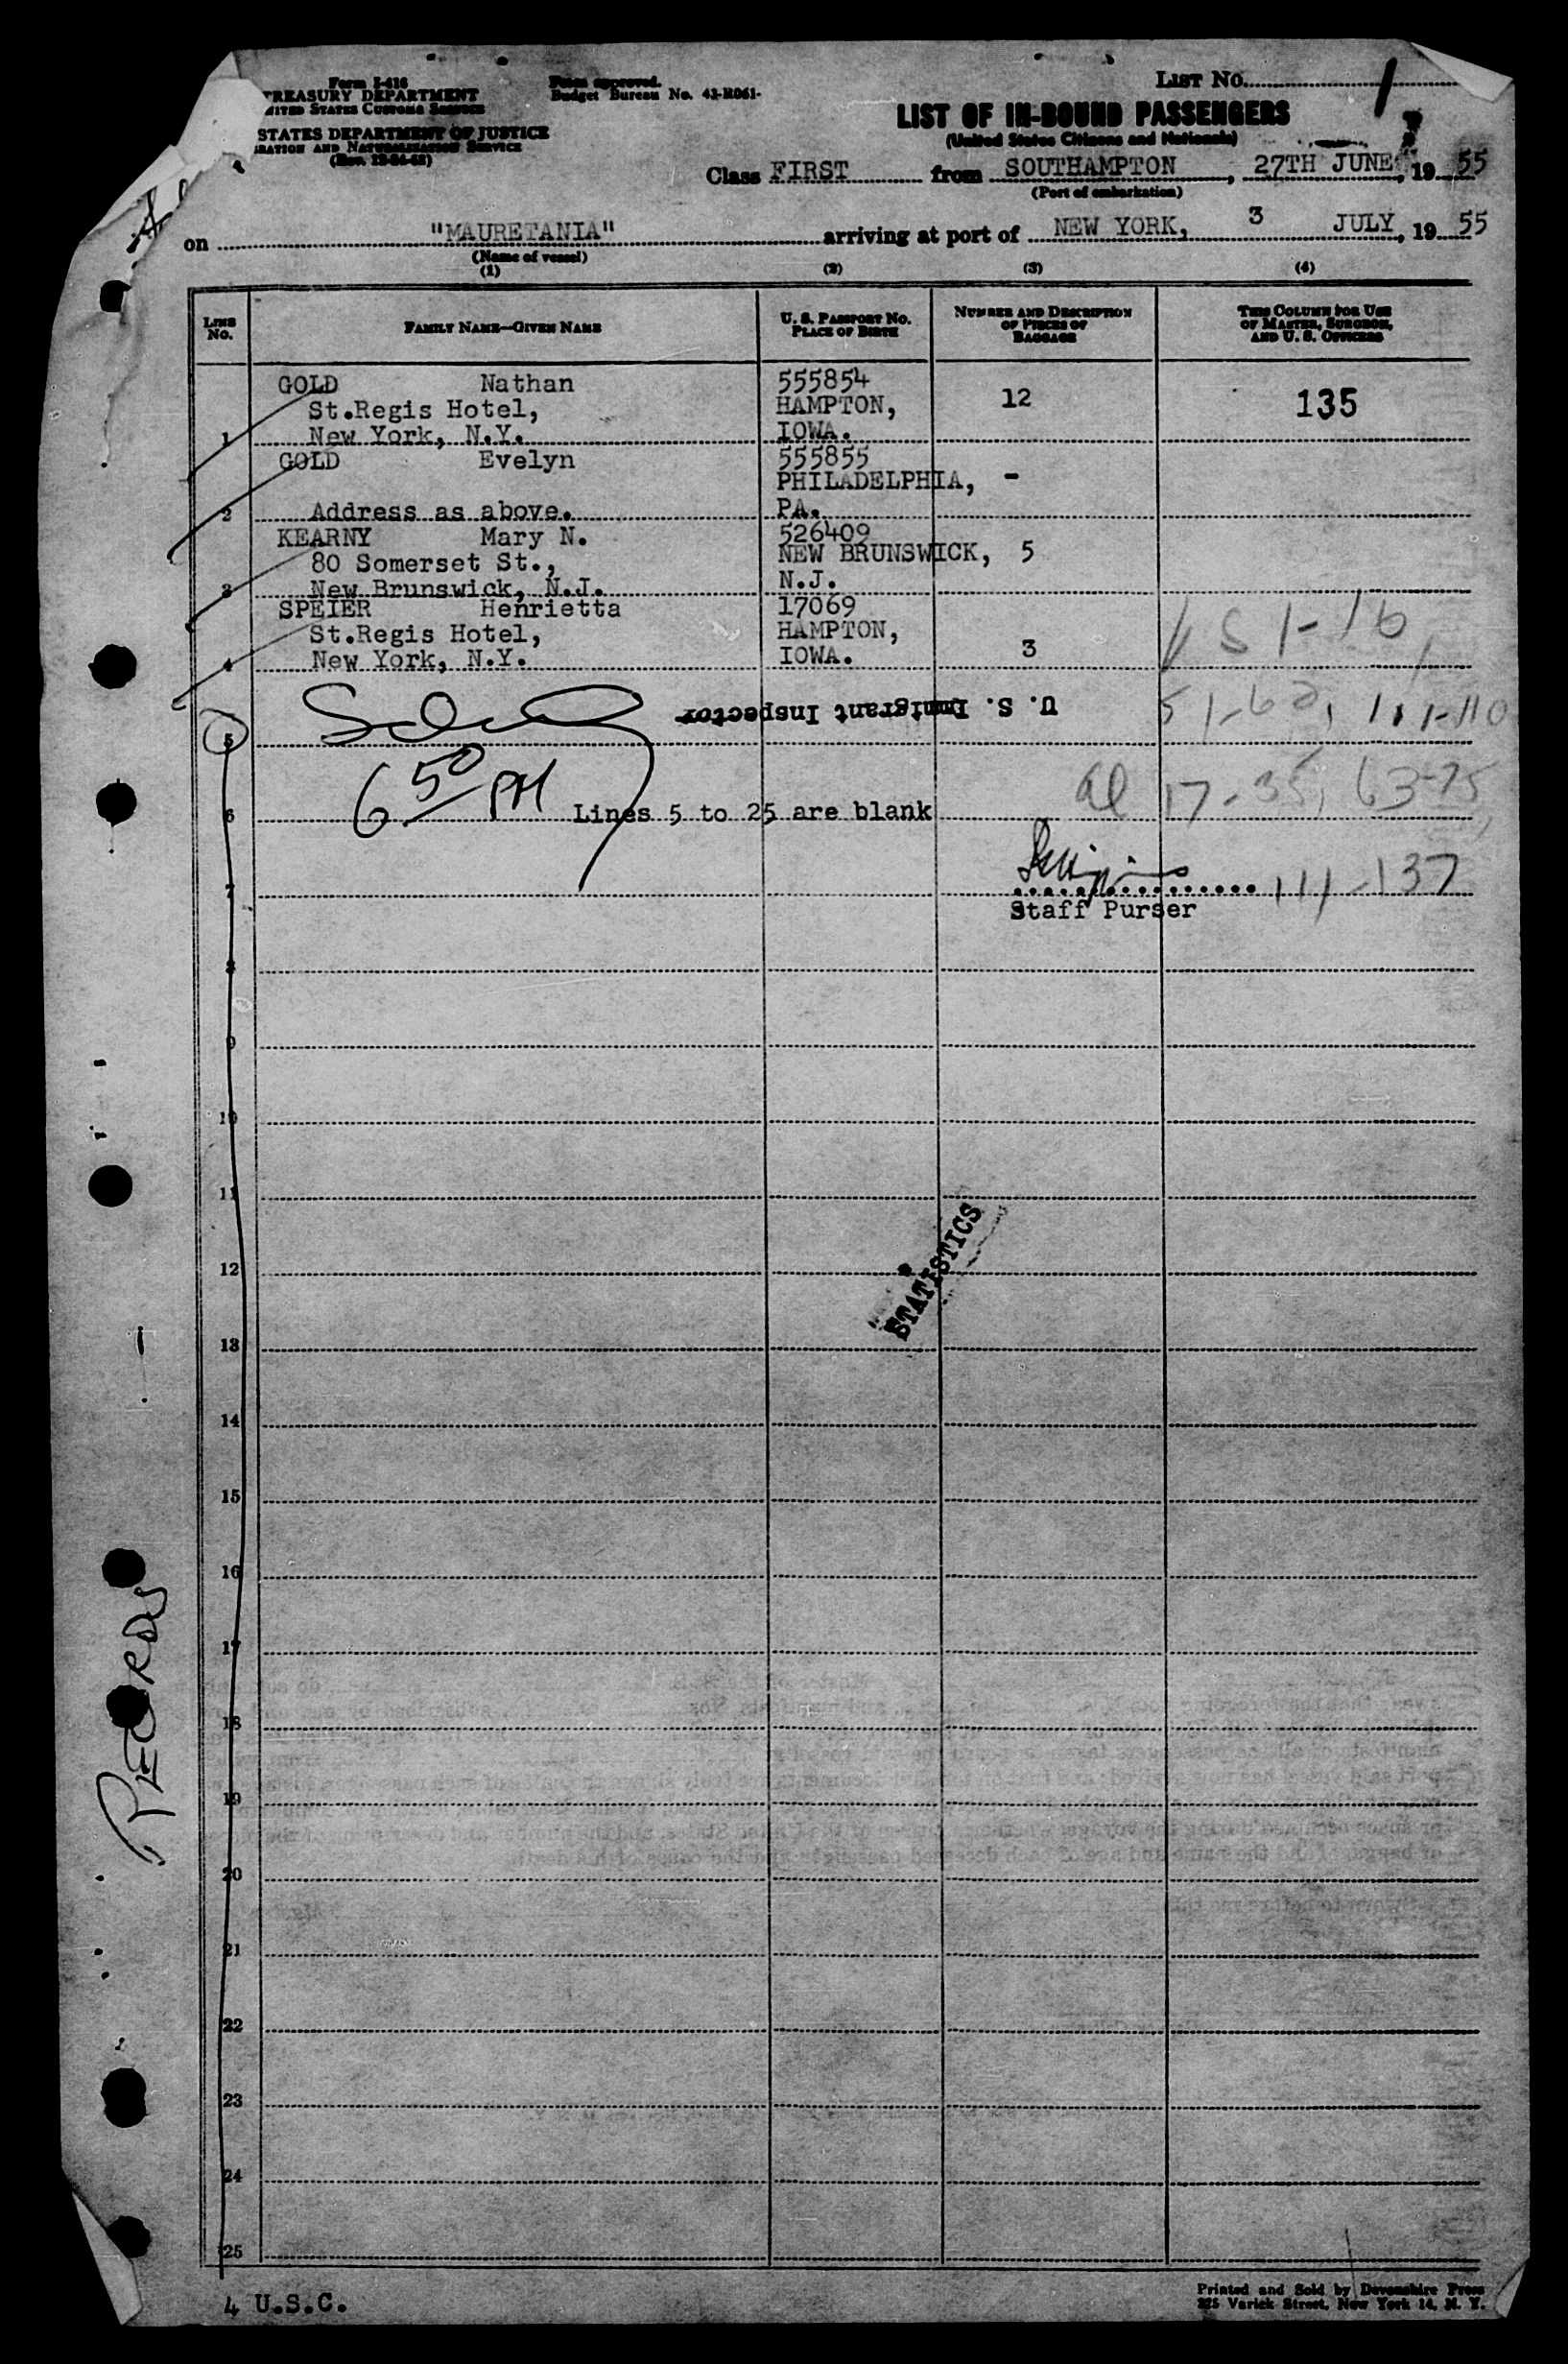 Form I-416
TREASURY DEPARTMENT
UNITED STATES CUSTOMS SERVICE
STATES DEPARTMENT OF JUSTICE
RATION AND NATURALIZATION SERVICE
Form approved.
Budget Bureau No. 43-R061-
LIST No. 1
LIST OF IN-BOUND PASSENGERS
(United States Citizens and Nationals)
Class FIRST from SOUTHAMPTON, 27TH JUNE, 19 55
(Port of embarkation)
on "MAURETANIA" arriving at port of NEW YORK, 3 JULY, 19 55
(Name of vessel)
(1) (2) (3) (4)
LINE No. FAMILY NAME—GIVEN NAME U. S. PASSPORT No. PLACE OF BIRTH NUMBER AND DESCRIPTION OF PIECES OF BAGGAGE THIS COLUMN FOR USE OF MASTER, SURGEON, AND U. S. OFFICERS
GOLD Nathan 555854
St.Regis Hotel, HAMPTON, 12 135
1 New York, N.Y. IOWA.
GOLD Evelyn 555855
PHILADELPHIA, -
2 Address as above. PA.
KEARNY Mary N. 526409
80 Somerset St., NEW BRUNSWICK, 5
3 New Brunswick, N.J. N.J.
SPEIER Henrietta 17069
St.Regis Hotel, HAMPTON,
4 New York, N.Y. IOWA. 3
U. S. Immigrant Inspector
5
6 50 PM
6 Lines 5 to 25 are blank
17-35, 63-75
7 111-137
Staff Purser
8
9
10
11
12
STATISTICS
13
14
15
16
17
18
19
20
21
22
23
24
25
RECORDS
4 U.S.C.
Printed and Sold by Devonshire Press
225 Varick Street, New York 14, N. Y.